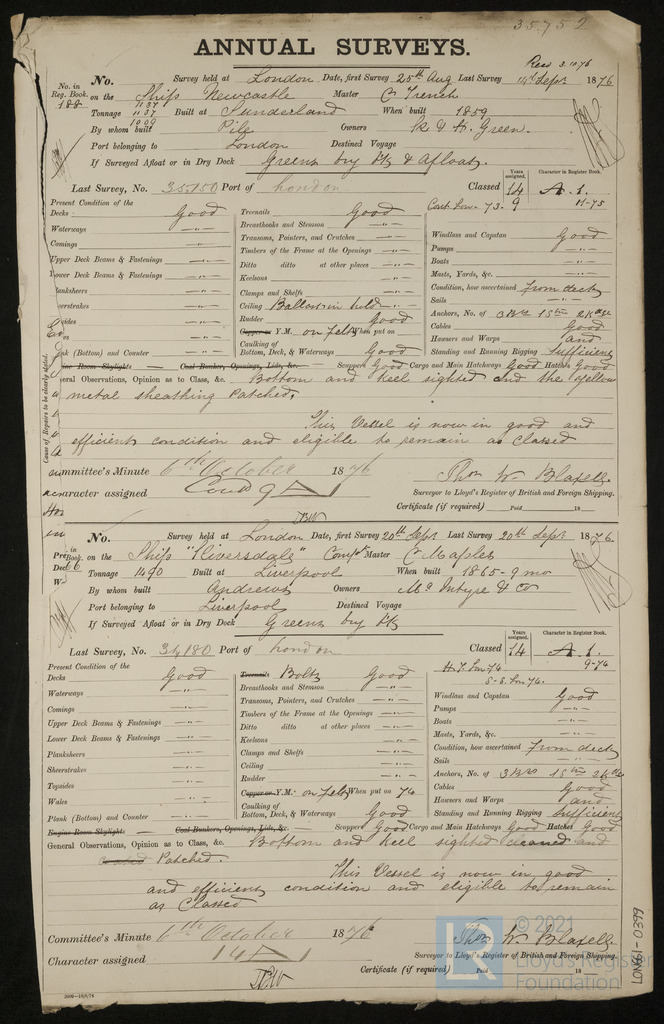 35752
ANNUAL SURVEYS.
Recd 3.10.76
No. Survey held at London Date, first Survey 25th Aug Last Survey 14th Sept 1876
No. in Reg. Book. 188 on the Ship Newcastle Master C French
Tonnage 1137 1137 1009 Built at Sunderland When built 1859
By whom built Pile Owners R & H. Green.
Port belonging to London Destined Voyage
If Surveyed Afloat or in Dry Dock Greens Dry Dk & Afloat.
Last Survey, No. 35,150 Port of London Classed Years assigned. 14 Character in Register Book. A.1.
Cont. Lon. 73. 9 11-75
Present Condition of the
Decks Good
Waterways —"—
Comings —"—
Upper Deck Beams & Fastenings —"—
Lower Deck Beams & Fastenings —"—
Planksheers —"—
Sheerstrakes —"—
Topsides —"—
Wales —"—
Plank (Bottom) and Counter —"—
Treenails Good
Breasthooks and Stemson —"—
Transoms, Pointers, and Crutches —"—
Timbers of the Frame at the Openings —"—
Ditto ditto at other places —"—
Keelsons —"—
Clamps and Shelfs —"—
Ceiling Ballast in hold —"—
Rudder Good
Copper or Y.M. on Felt When put on
Caulking of Bottom, Deck, & Waterways Good
Windlass and Capstan Good
Pumps —"—
Boats —"—
Masts, Yards, &c. —"—
Condition, how ascertained From deck
Sails —"—
Anchors, No. of 3 Brs 1 Stm 2 Kedge
Cables Good
Hawsers and Warps and
Standing and Running Rigging Sufficient
Engine Room Skylights — Coal Bunkers, Openings, Lids, &c. — Scuppers Good Cargo and Main Hatchways Good Hatches Good
General Observations, Opinion as to Class, &c. Bottom and keel sighted and the yellow
metal sheathing Patched.
This Vessel is now in good and
efficient condition and eligible to remain as Classed
Cause of Repairs to be clearly stated.
Committee's Minute 6th October 1876
Character assigned Contd 9 A 1
Thos W Blaxell.
Surveyor to Lloyd's Register of British and Foreign Shipping.
Certificate (if required) Paid 18
No. Survey held at London Date, first Survey 20th Sept Last Survey 20th Sept 1876.
on the Ship "Riversdale" Compte Master C Maples
Tonnage 1490 Built at Liverpool When built 1865-9 mo
By whom built Andrews Owners Mc Intyre & Co
Port belonging to Liverpool Destined Voyage
If Surveyed Afloat or in Dry Dock Greens Dry Dk
Last Survey, No. 34,180 Port of London Classed Years assigned. 14 Character in Register Book. A.1.
9-74
H.T. Lon 74.
S.S. Lon 74.
Present Condition of the
Decks Good
Waterways —"—
Comings —"—
Upper Deck Beams & Fastenings —"—
Lower Deck Beams & Fastenings —"—
Planksheers —"—
Sheerstrakes —"—
Topsides —"—
Wales —"—
Plank (Bottom) and Counter —"—
Treenails Bolts Good
Breasthooks and Stemson —"—
Transoms, Pointers, and Crutches —"—
Timbers of the Frame at the Openings —"—
Ditto ditto at other places —"—
Keelsons —"—
Clamps and Shelfs —"—
Ceiling —"—
Rudder —"—
Copper or Y.M. on Felt When put on 74
Caulking of Bottom, Deck, & Waterways Good
Windlass and Capstan Good
Pumps —"—
Boats —"—
Masts, Yards, &c. —"—
Condition, how ascertained From deck
Sails —"—
Anchors, No. of 3 Brs 1 Stm 2 Kdge
Cables Good
Hawsers and Warps and
Standing and Running Rigging Sufficient
Engine Room Skylight — Coal Bunkers, Openings, Lids, &c. — Scuppers Good Cargo and Main Hatchways Good Hatches Good
General Observations, Opinion as to Class, &c. Bottom and keel sighted cleaned and
Patched.
This Vessel is now in good
and efficient condition and eligible to remain
as Classed
Committee's Minute 6th October 1876
Character assigned 14 A 1
Thos W Blaxell
Surveyor to Lloyd's Register of British and Foreign Shipping.
Certificate (if required) Paid 18
LON661-0399
© 2021
Lloyd's Register
Foundation
LR